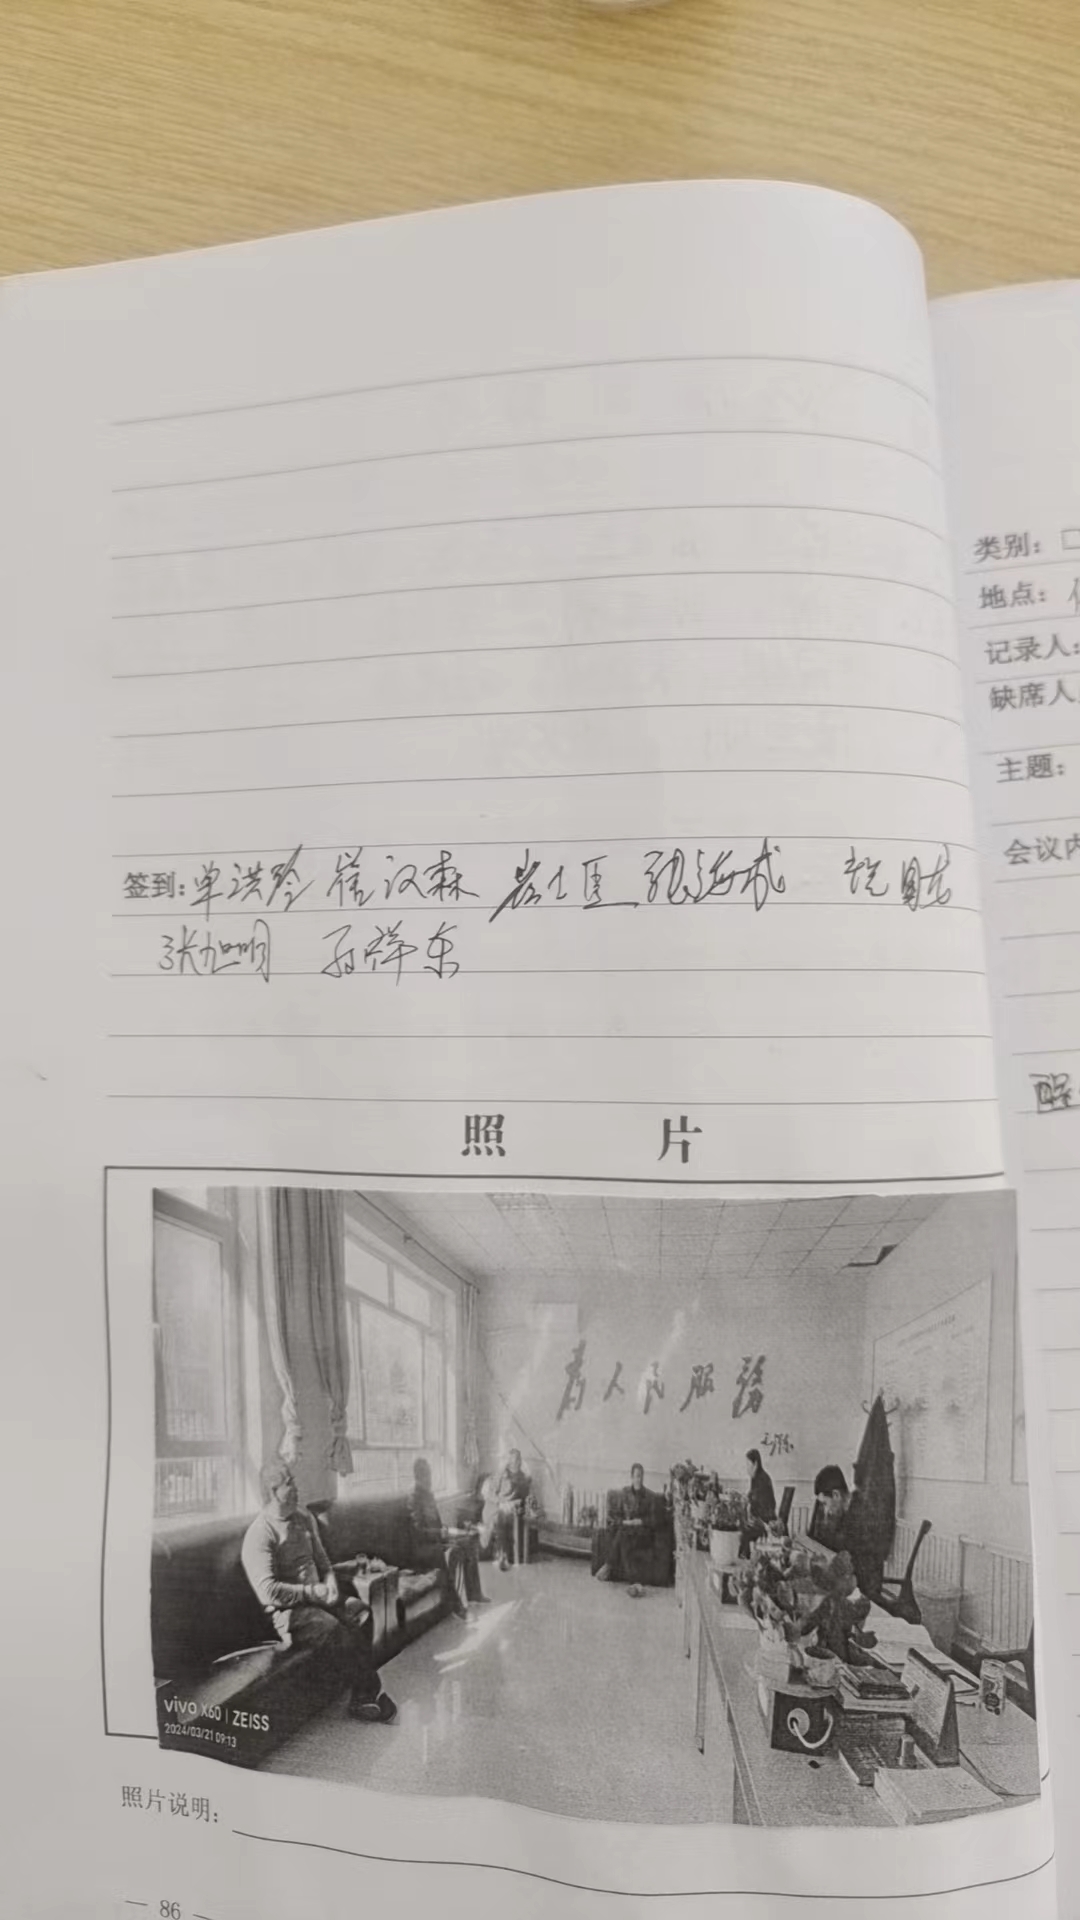 签到：单洪玲 崔汉森
张旭明 孙祥东
照 片
为人民服务
vivo X60 | ZEISS
2024/03/21 09:13
照片说明：
— 86 —
类别：□
地点：
记录人：
缺席人
主题：
会议内